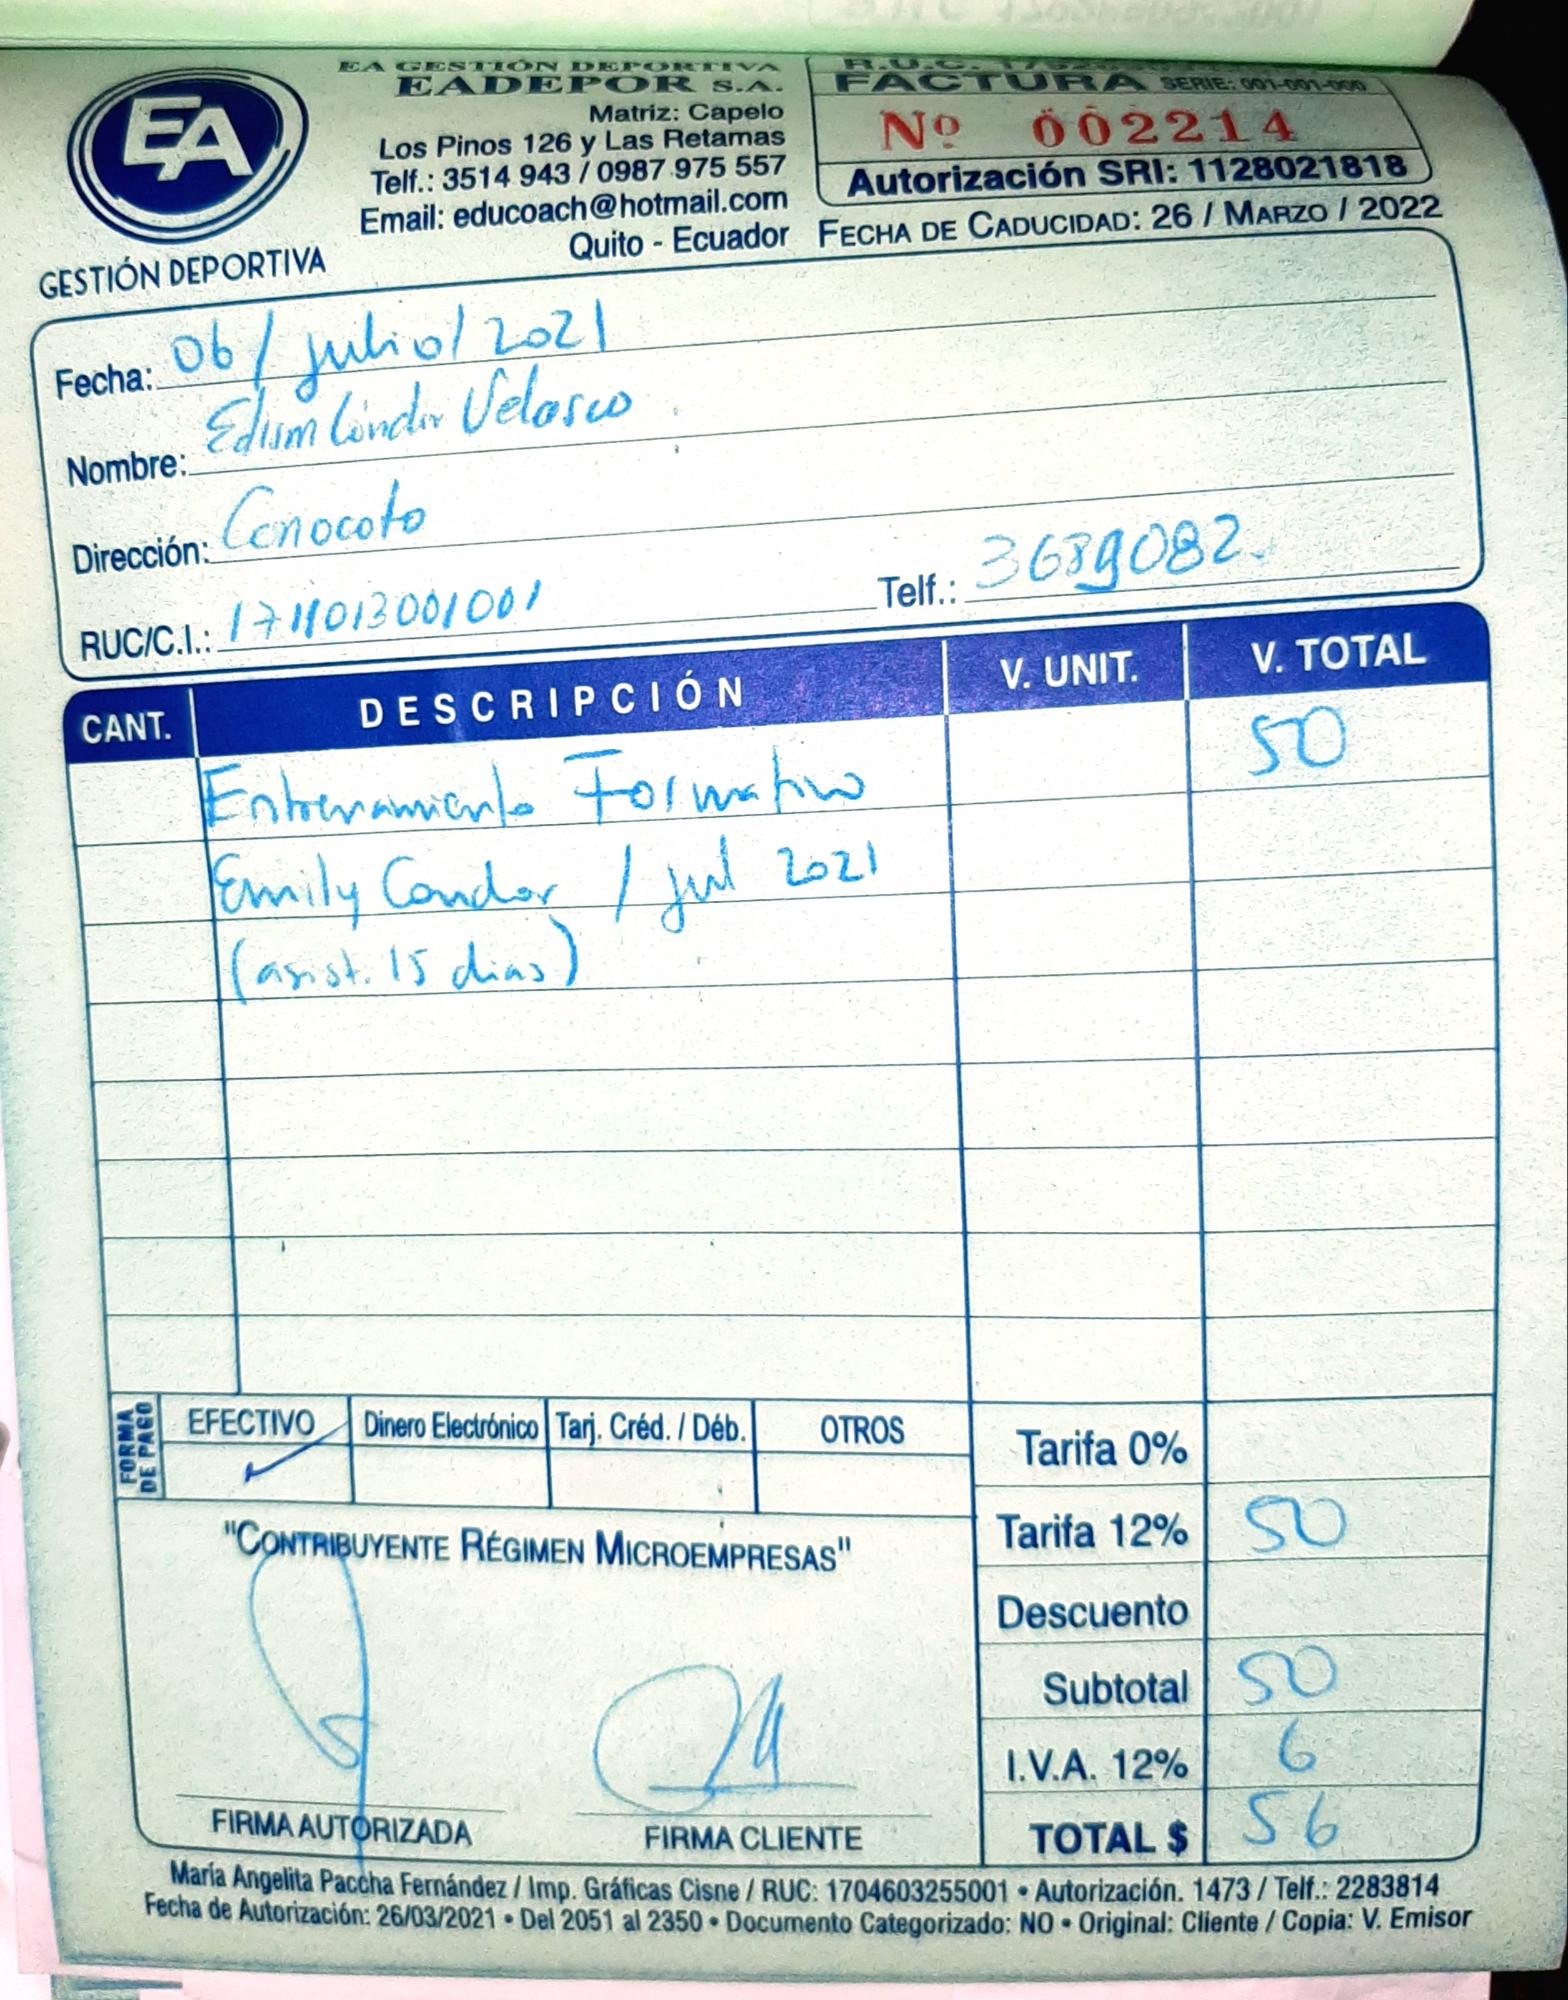 EA
GESTIÓN DEPORTIVA
EA GESTIÓN DEPORTIVA
EADEPOR S.A.
Matriz: Capelo
Los Pinos 126 y Las Retamas
Telf.: 3514 943 / 0987 975 557
Email: educoach@hotmail.com
Quito - Ecuador
R.U.C.
FACTURA SERIE: 001-001-000
Nº 002214
Autorización SRI: 1128021818
FECHA DE CADUCIDAD: 26 / MARZO / 2022
Fecha: 06 / julio / 2021
Nombre: Velasco
Dirección: Conocoto
RUC/C.I.: 1711013001001 Telf.: 3689082
CANT. DESCRIPCIÓN V. UNIT. V. TOTAL
Entrenamiento Formativo 50
Emily Condor / jul 2021
(asist. 15 dias)
FORMA DE PAGO EFECTIVO Dinero Electrónico Tarj. Créd. / Déb. OTROS
Tarifa 0%
Tarifa 12% 50
Descuento
Subtotal 50
I.V.A. 12% 6
TOTAL $ 56
"CONTRIBUYENTE RÉGIMEN MICROEMPRESAS"
FIRMA AUTORIZADA FIRMA CLIENTE
María Angelita Paccha Fernández / Imp. Gráficas Cisne / RUC: 1704603255001 • Autorización. 1473 / Telf.: 2283814
Fecha de Autorización: 26/03/2021 • Del 2051 al 2350 • Documento Categorizado: NO • Original: Cliente / Copia: V. Emisor